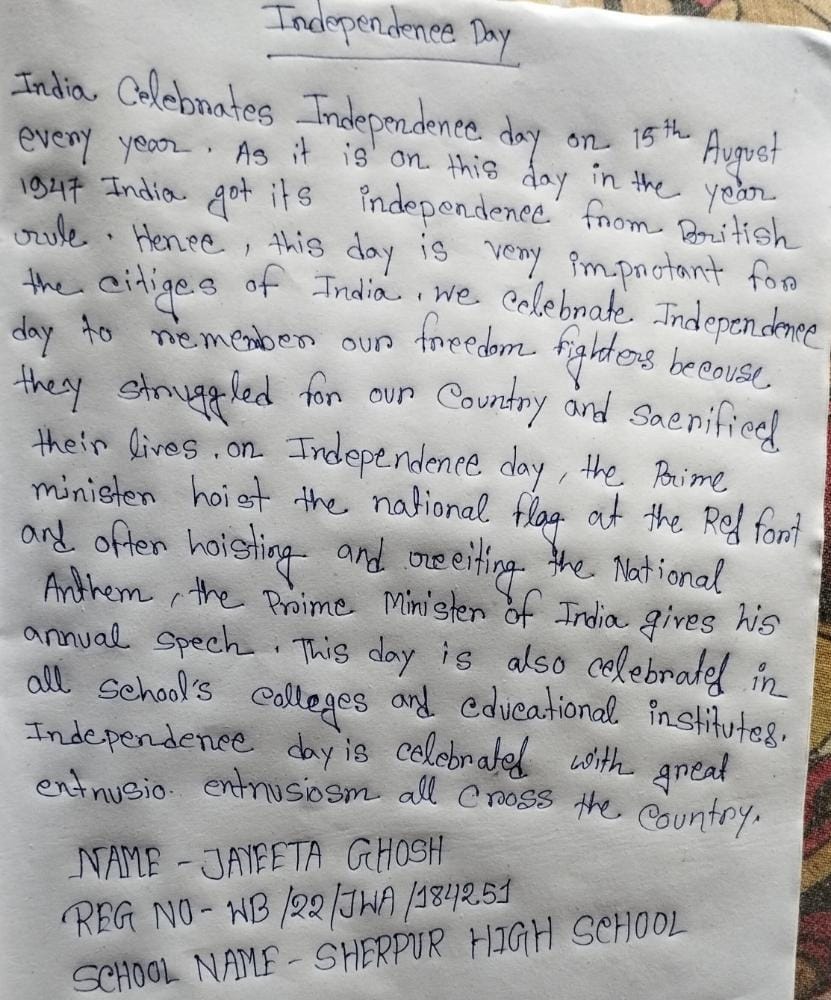 Independence Day
India Celebrates Independence day on 15th August
every year. As it is on this day in the year
1947 India got its independence from British
rule. Hence, this day is very impnotant for
the citiges of India. we celebrate Independence
day to remember our freedom fighters becouse
they struggled for our Country and Sacrificed
their lives. on Independence day, the Prime
minister hoist the national flag at the Red fort
and ofter hoisting and receiting the National
Anthem, the Prime Minister of India gives his
annual Spech. This day is also celebrated in
all school's colleges and educational institutes.
Independence day is celebrated with great
entnusio. entnusiosm all Cross the Country.
NAME - JAYEETA GHOSH
REG NO - WB/22/JWA/184251
SCHOOL NAME - SHERPUR HIGH SCHOOL